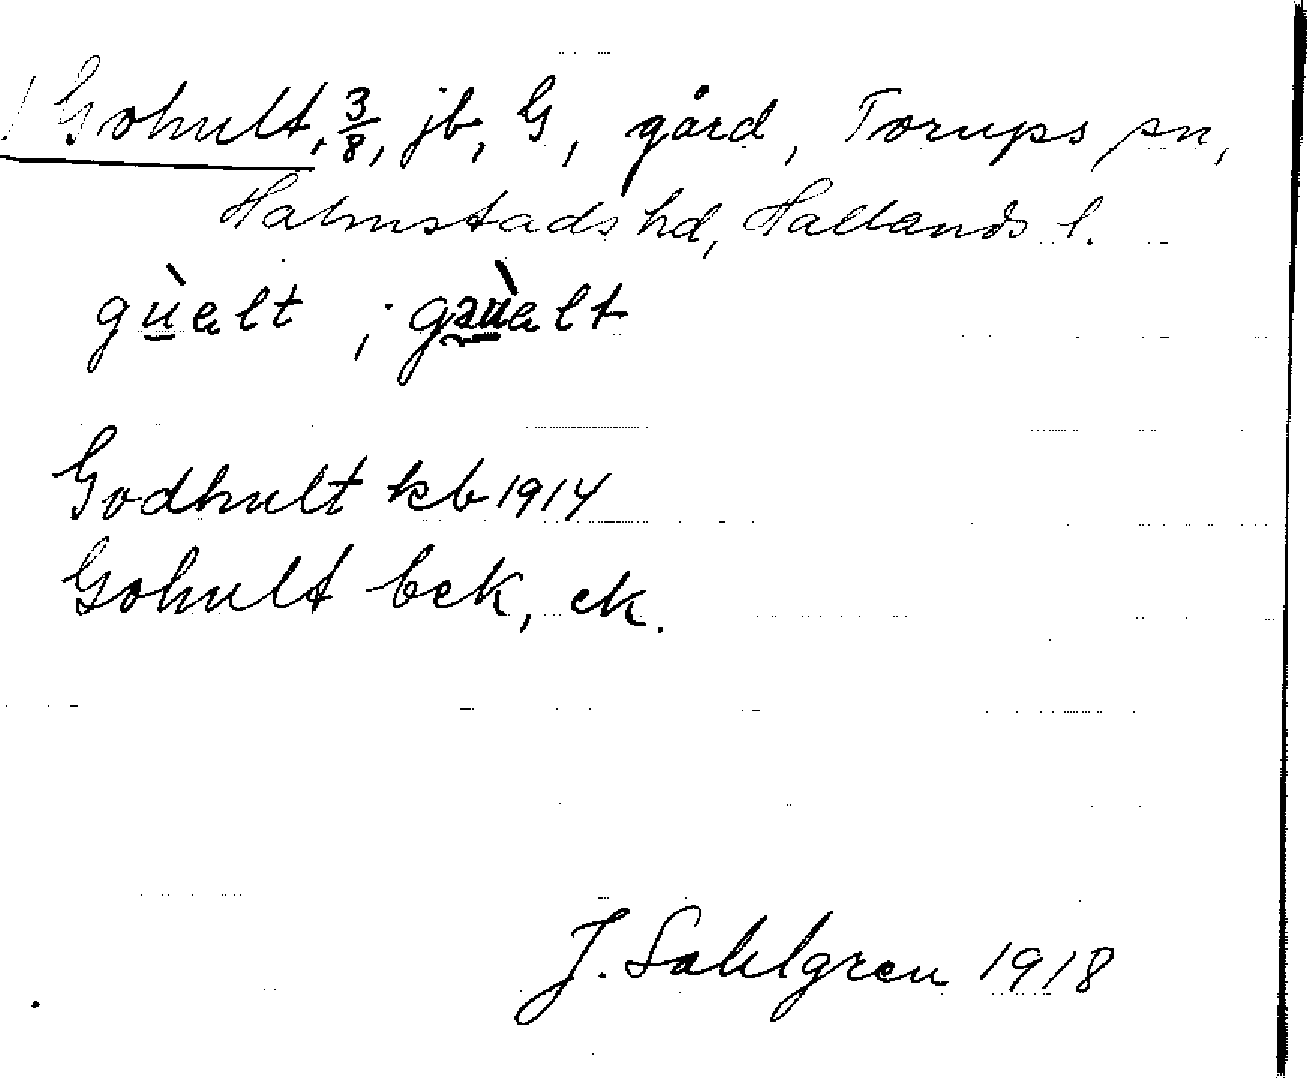 Gohult, 3/8, jb, G, gård, Torups sn,
Halmstads hd, Hallands l.
gù̲alt ; gəù̲alt
Godhult kb 1914
Gohult bek, ek.
J. Sahlgren 1918